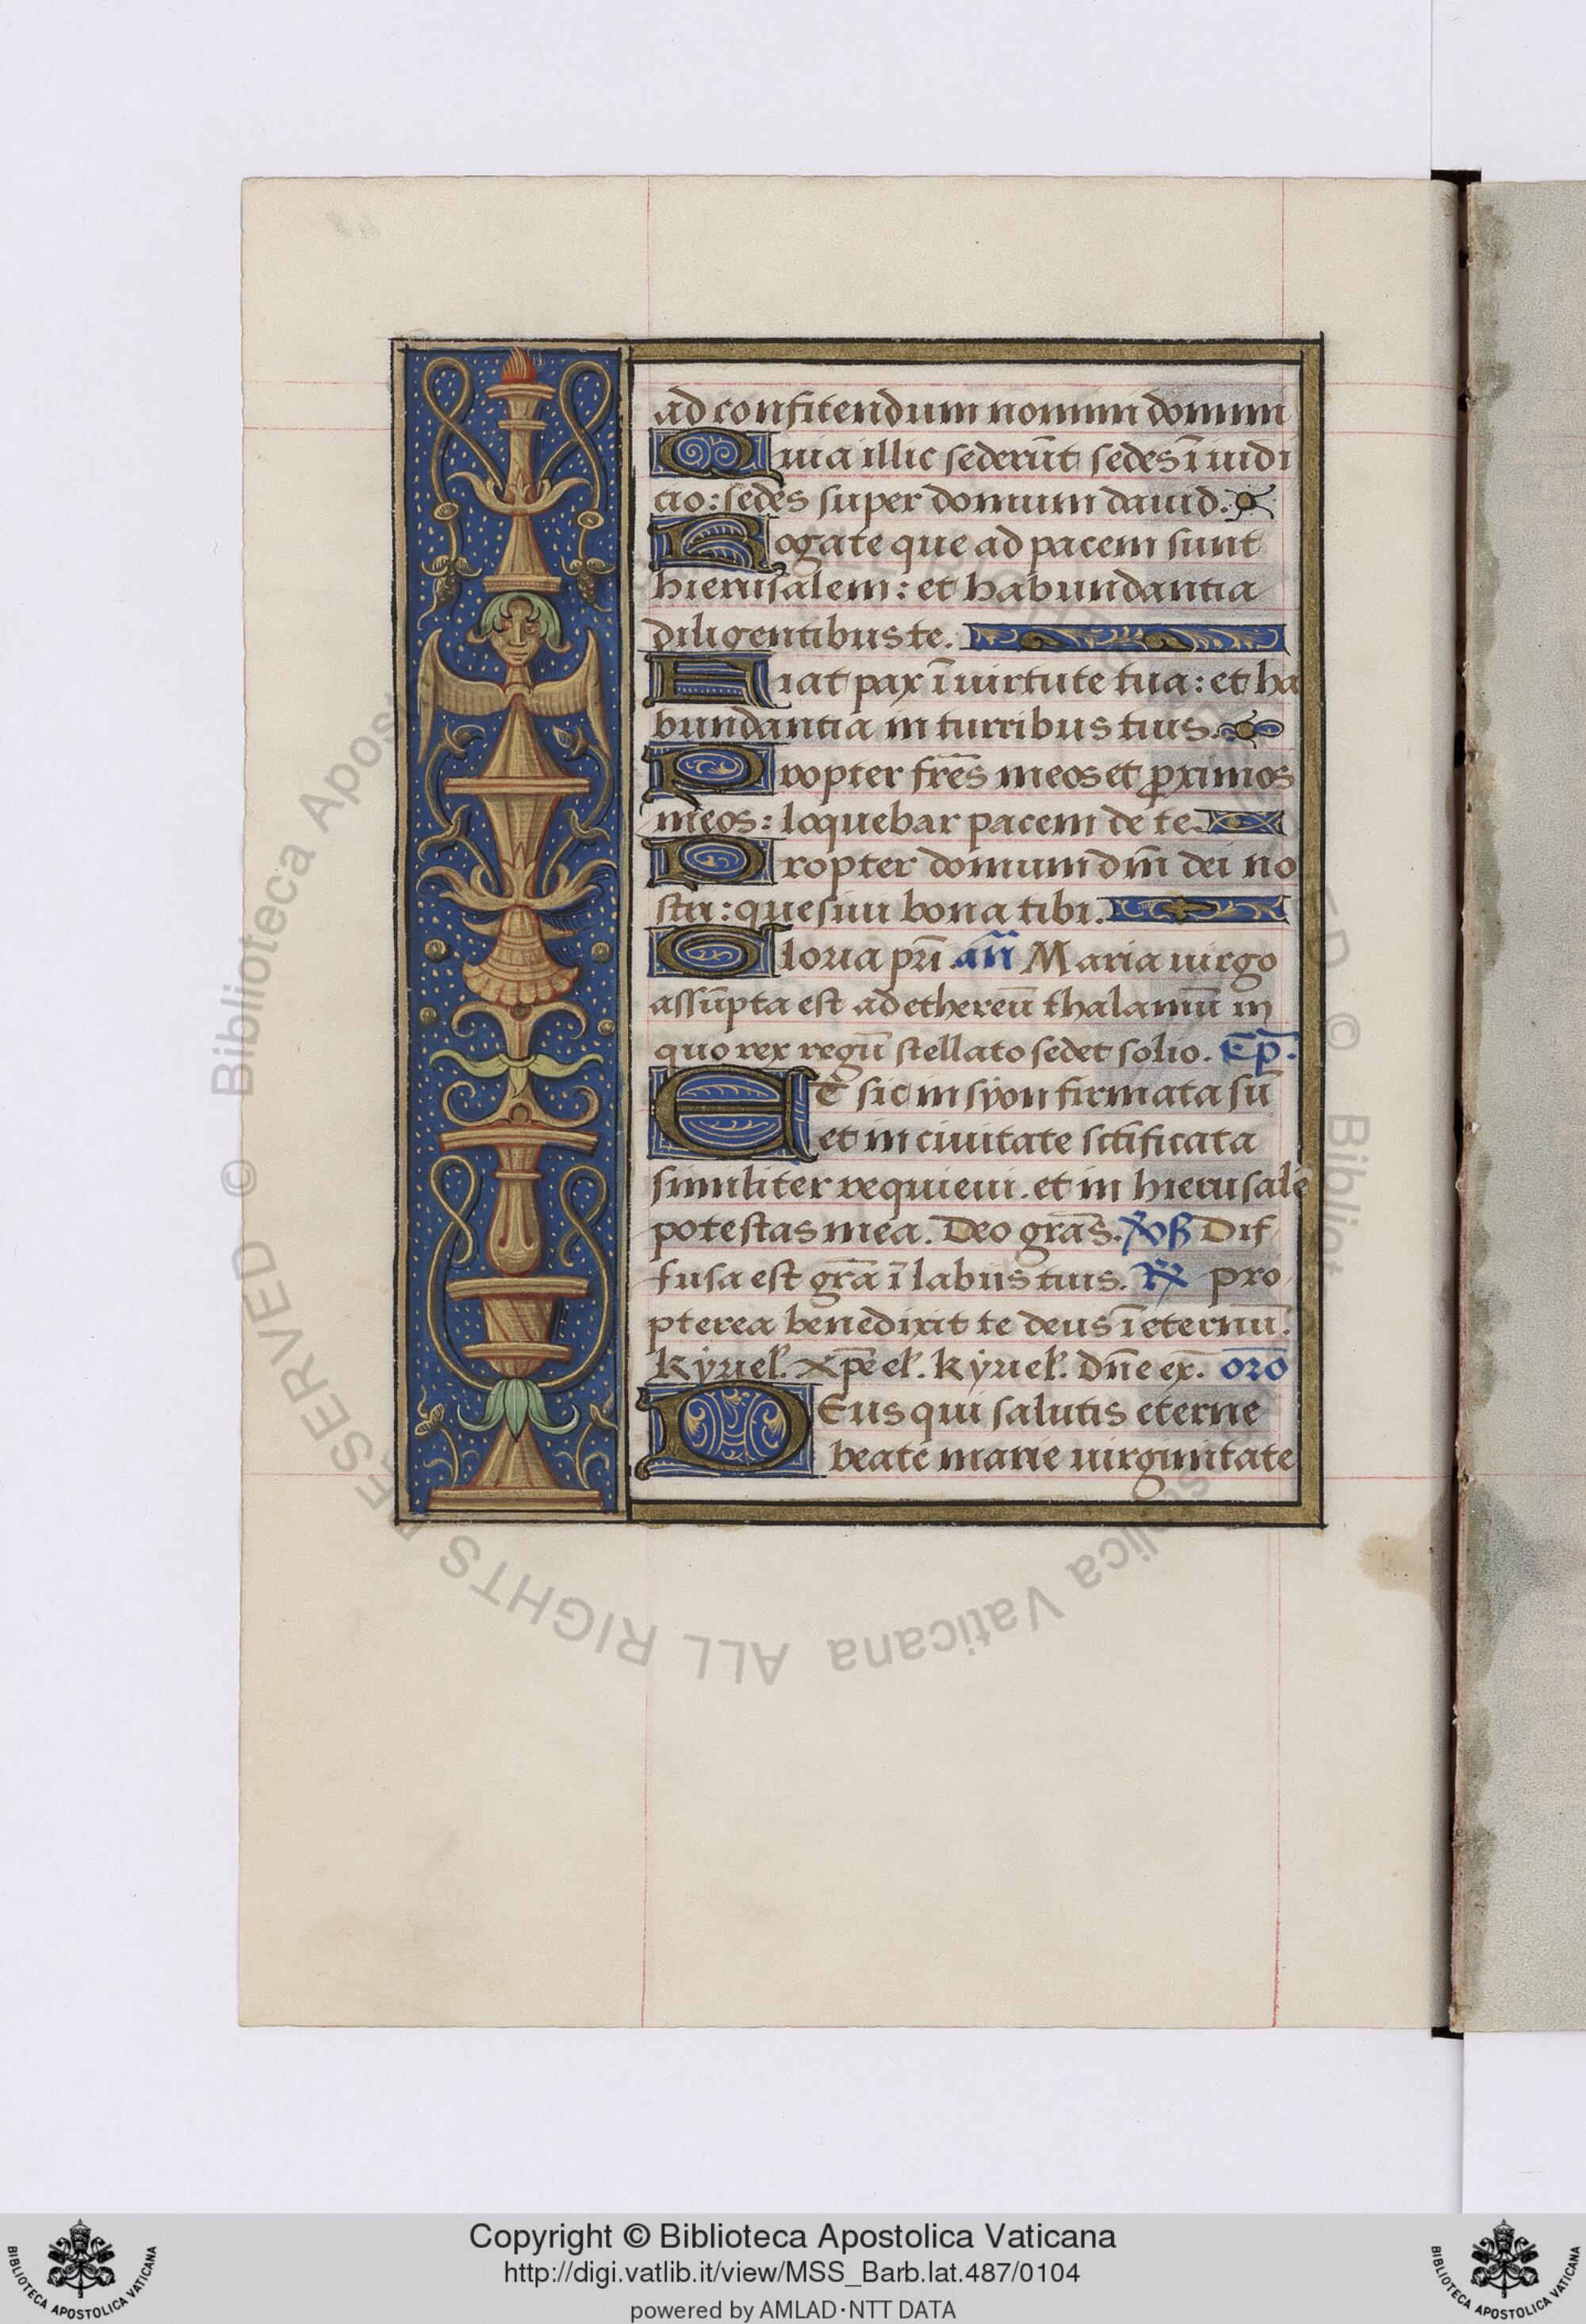 ad confitendum nomini domini
Quia illic sederūt sedes ī iudi
cio: sedes super domum dauid.
Rogate que ad pacem sunt
hierusalem: et habundantia
diligentibus te.
Fiat pax ī uirtute tua: et ha
bundantia in turribus tuis.
Propter frēs meos et ꝓximos
meos: loquebar pacem de te.
Propter domum dn̄i dei no
stri: quesiui bona tibi.
Gloria pr̄i. an̄ Maria uirgo
assūpta est ad ethereū thalamū in
quo rex regū stellato sedet solio. Cp̄.
ET sic in syon firmata sū
et in ciuitate sc̄tificata
similiter requieui. et in hierusalē
potestas mea. Deo grās. v̾ß Dif
fusa est grā ī labiis tuis. R̾ pro
pterea benedixit te deus ī eternū.
kyriel̾. xp̄eel̾. kyriel̾. dn̄e ex̄. or̄o
DEus qui salutis eterne
beate marie uirginitate
© Biblioteca Apostolica Vaticana ALL RIGHTS RESERVED
Copyright © Biblioteca Apostolica Vaticana
http://digi.vatlib.it/view/MSS_Barb.lat.487/0104
powered by AMLAD·NTT DATA
BIBLIOTECA APOSTOLICA VATICANA
BIBLIOTECA APOSTOLICA VATICANA